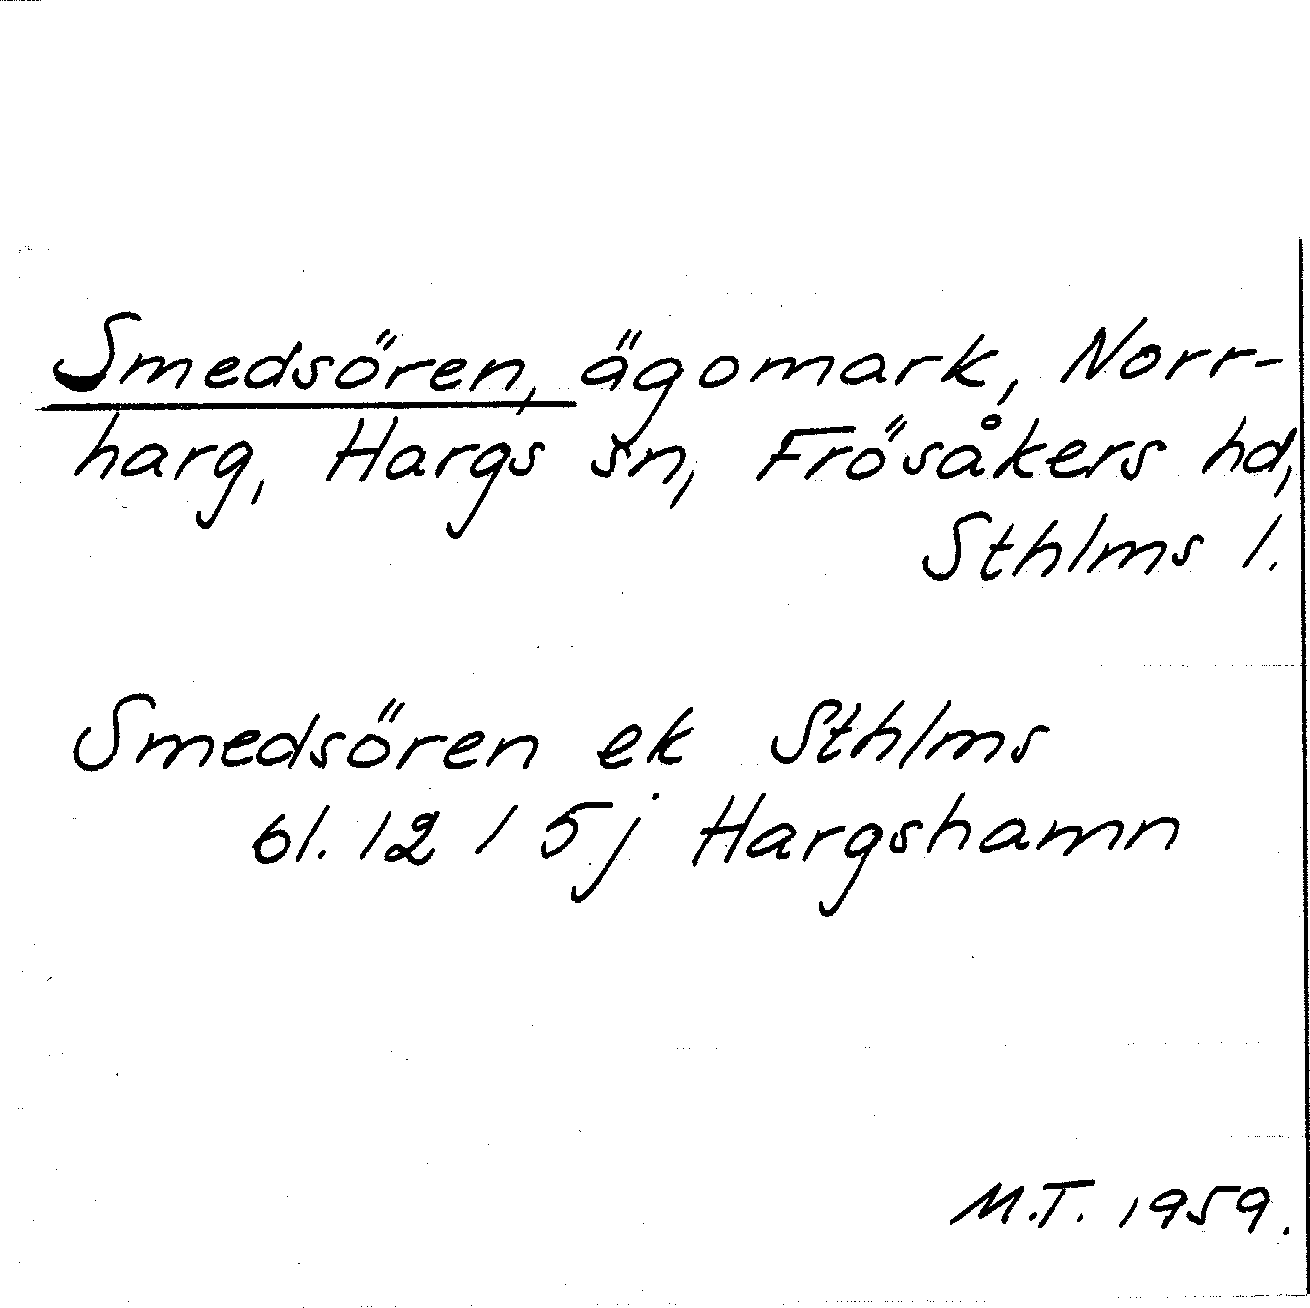 Smedsören, ägomark, Norr-
harg, Hargs sn, Frösåkers hd,
Sthlms l.
Smedsören ek Sthlms
bl. 12 / 5j Hargshamn
M.T. 1959.